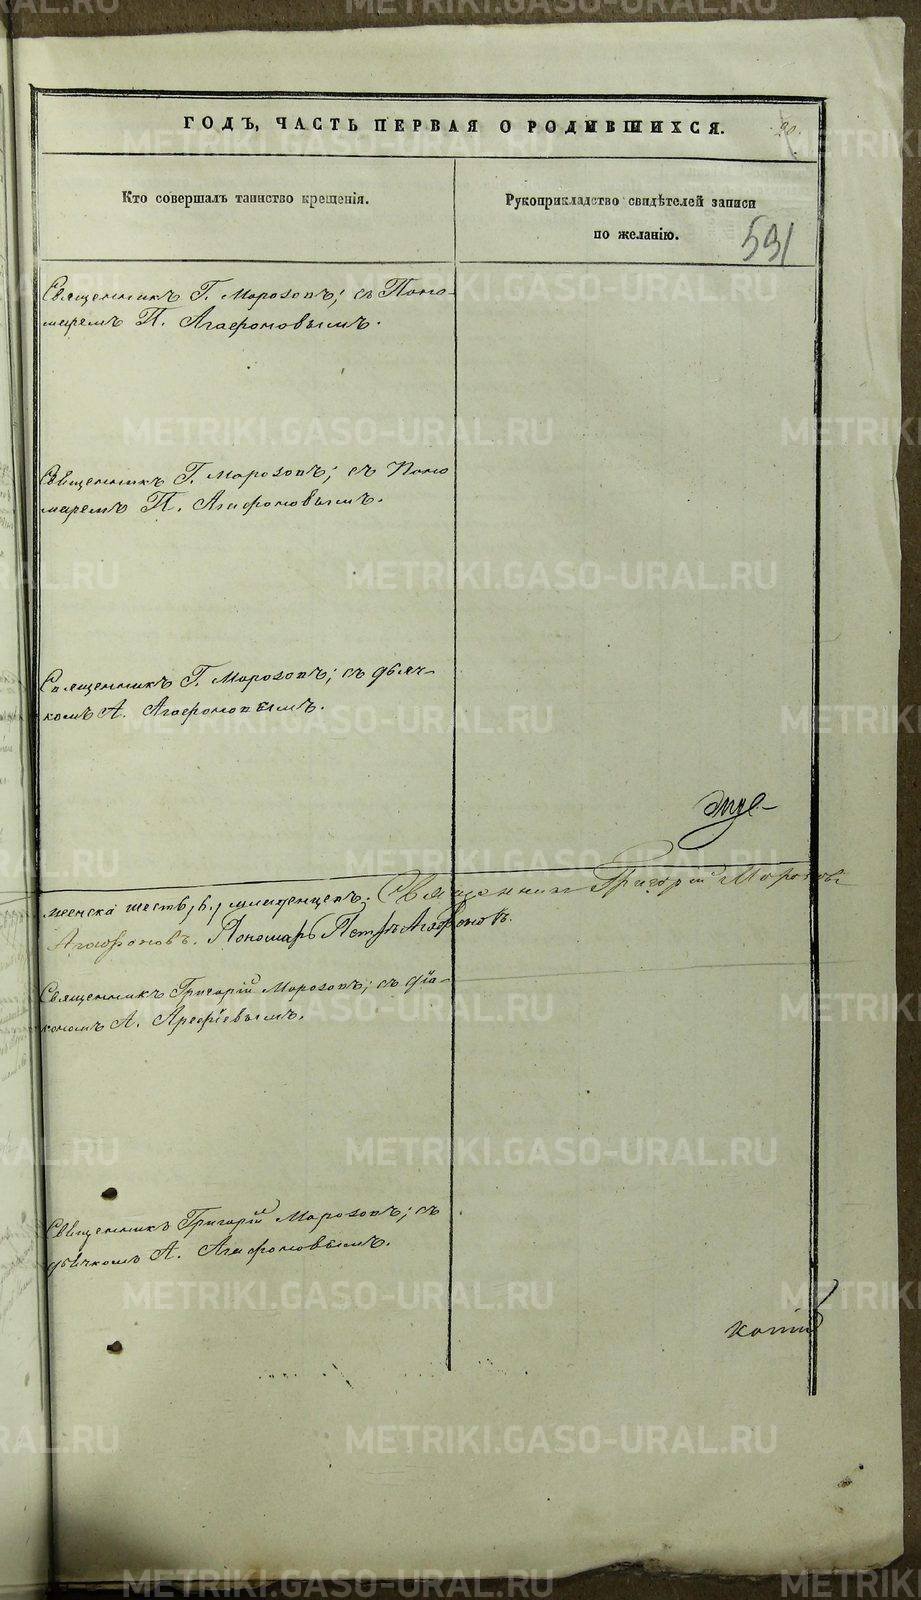 ГОДЪ, ЧАСТЬ ПЕРВАЯ О РОДИВШИХСЯ.
20.
Кто совершалъ таинство крещенія.
Рукоприкладство свидѣтелей записи
по желанію.
591
Священникъ Г. Морозовъ; съ Поно-
маремъ П. Агафоновымъ.
Священникъ Г. Морозовъ; съ Поно
маремъ П. Агафоновымъ.
Священникъ Г. Морозовъ; съ дьяч-
комъ А. Агафоновымъ.
женска шесть, 6., младенцевъ; Священникъ Григорій Морозовъ
Агафоновъ. Пономарь Петръ Агафоновъ.
Священникъ Григорій Морозовъ; съ діа-
кономъ А. Арефіевымъ.
Священникъ Григорій Морозовъ; съ
дьячкомъ А. Агафоновымъ.
METRIKI.GASO-URAL.RU